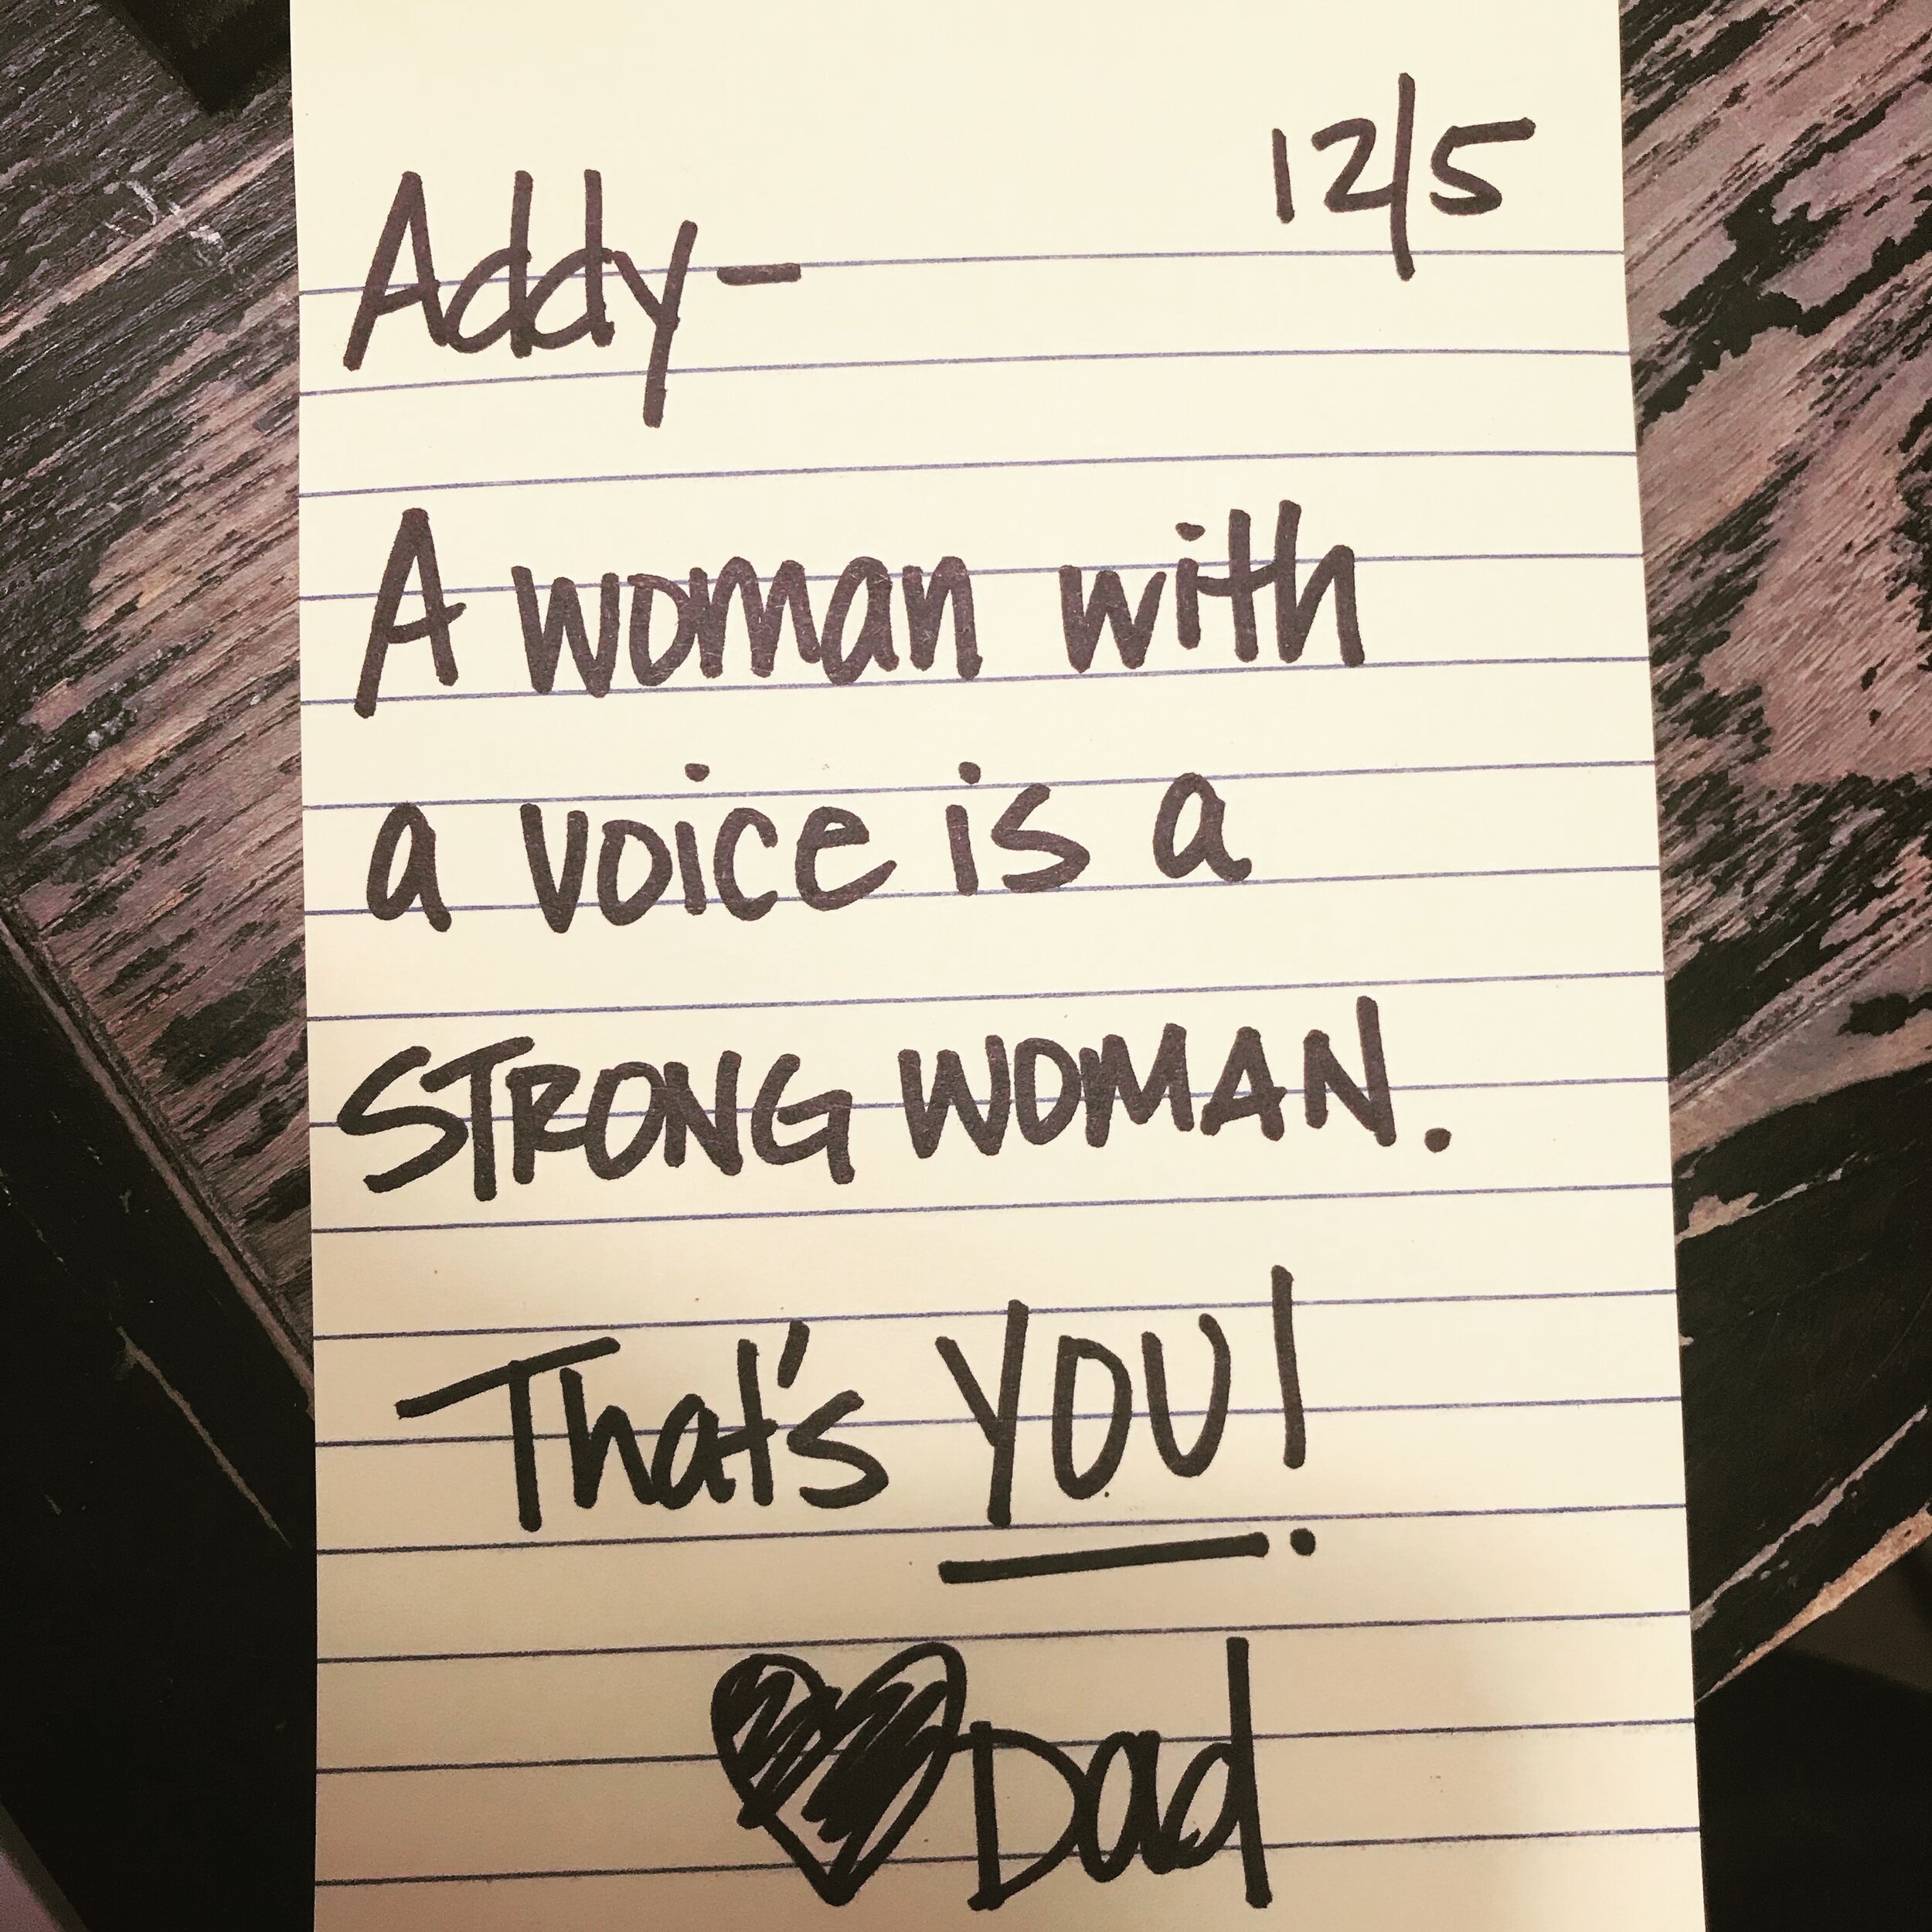 12/5
Addy-
A woman with
a voice is a
STRONG WOMAN.
That's YOU!
♥Dad